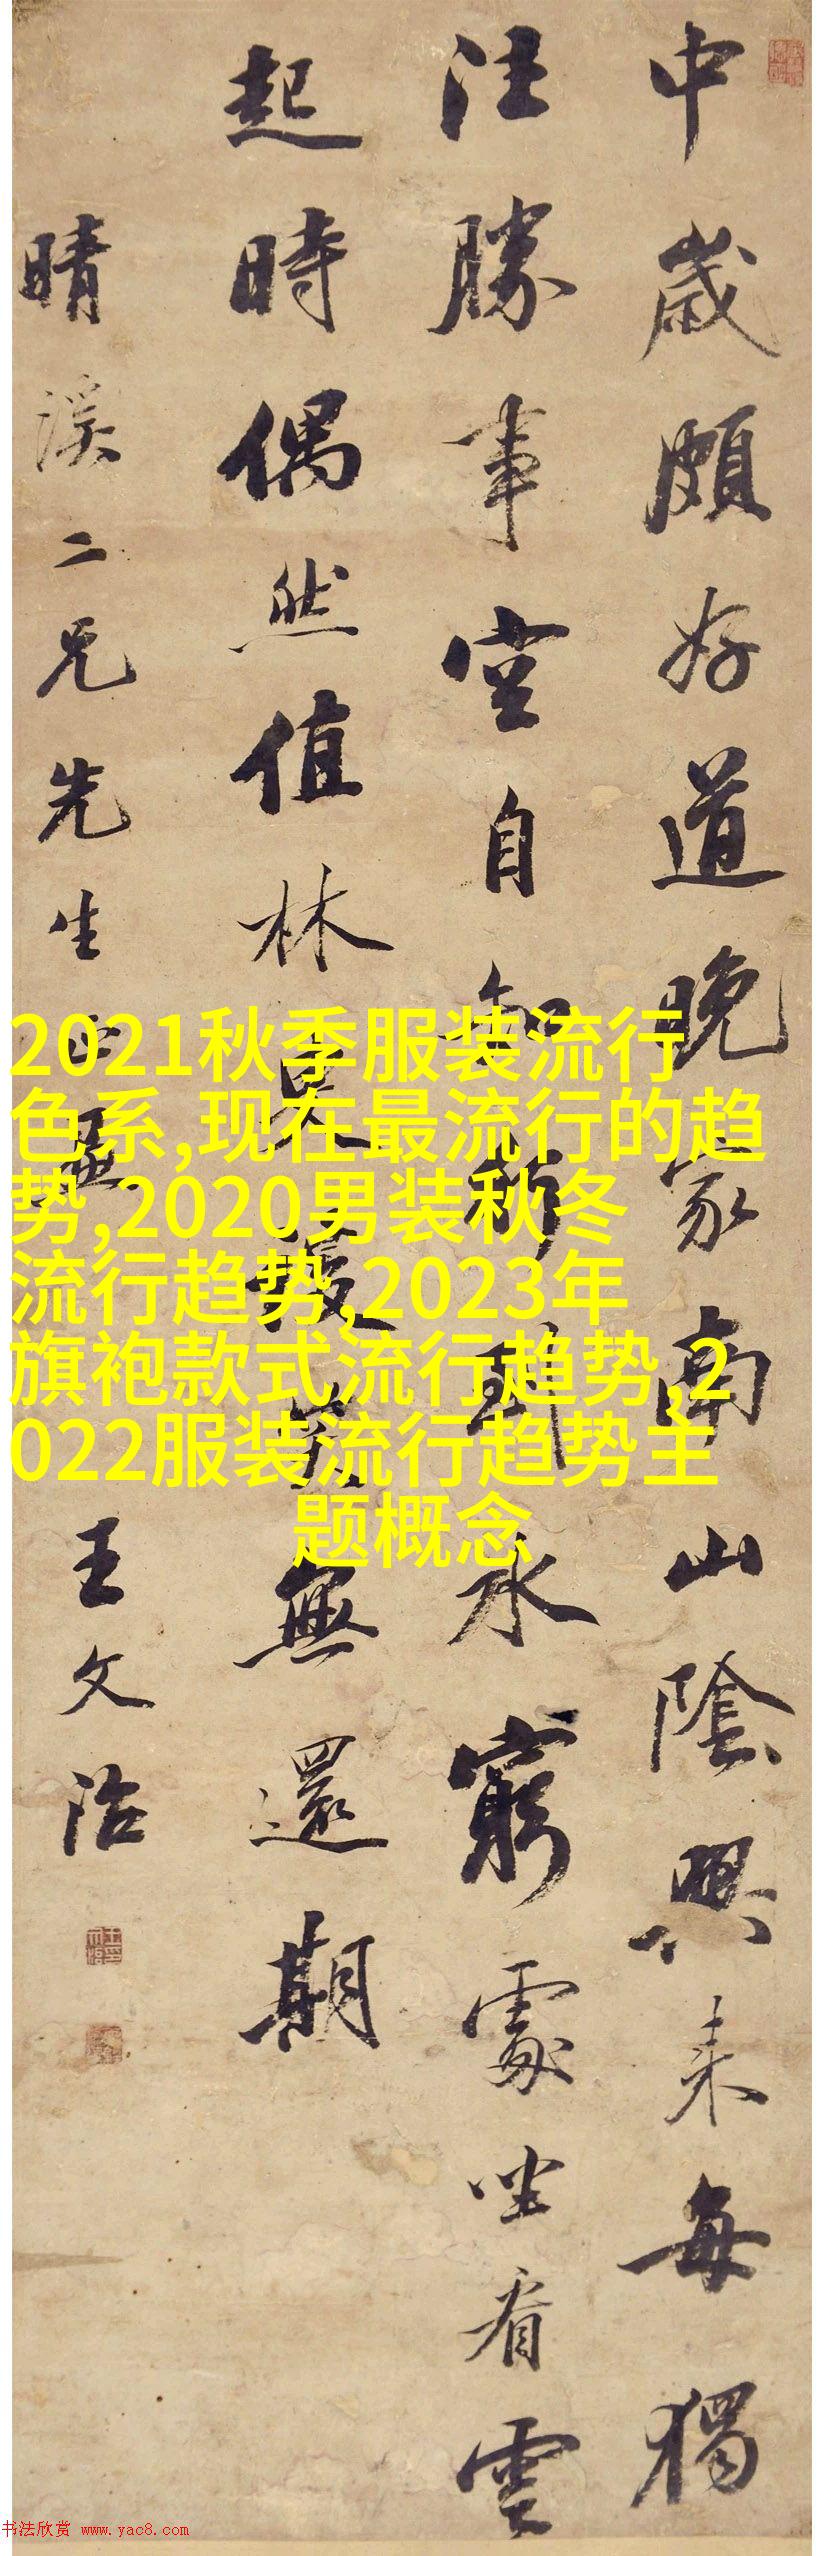 中歲頗好道晚家南山陰興來每獨
往勝事空自知行到水窮處坐看雲
起時偶然值林叟笑無還期
晴溪二兄先生正
王文治
2021秋季服装流行
色系,现在最流行的趋
势,2020男装秋冬
流行趋势,2023年
旗袍款式流行趋势,2
022服装流行趋势主
题概念
书法欣赏 www.yac8.com